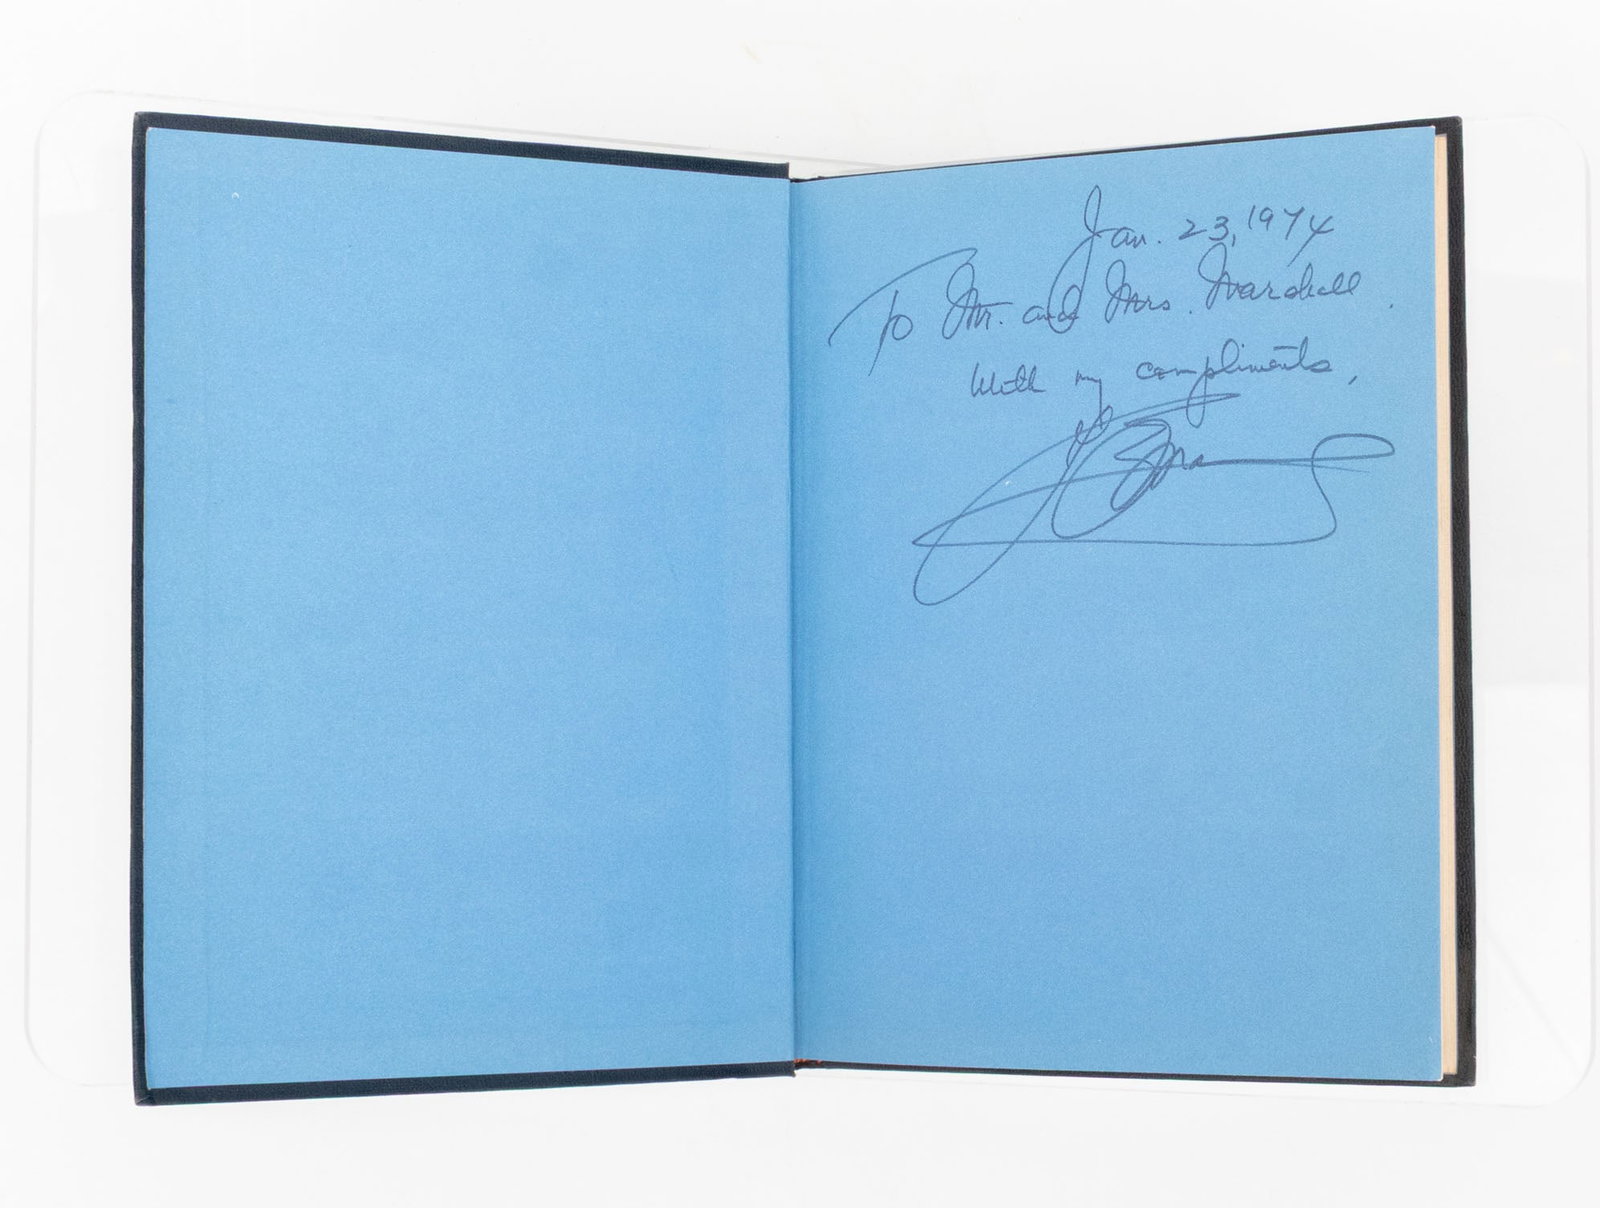 Jan. 23, 1974
To Mr. and Mrs. Marshall.
With my compliments,